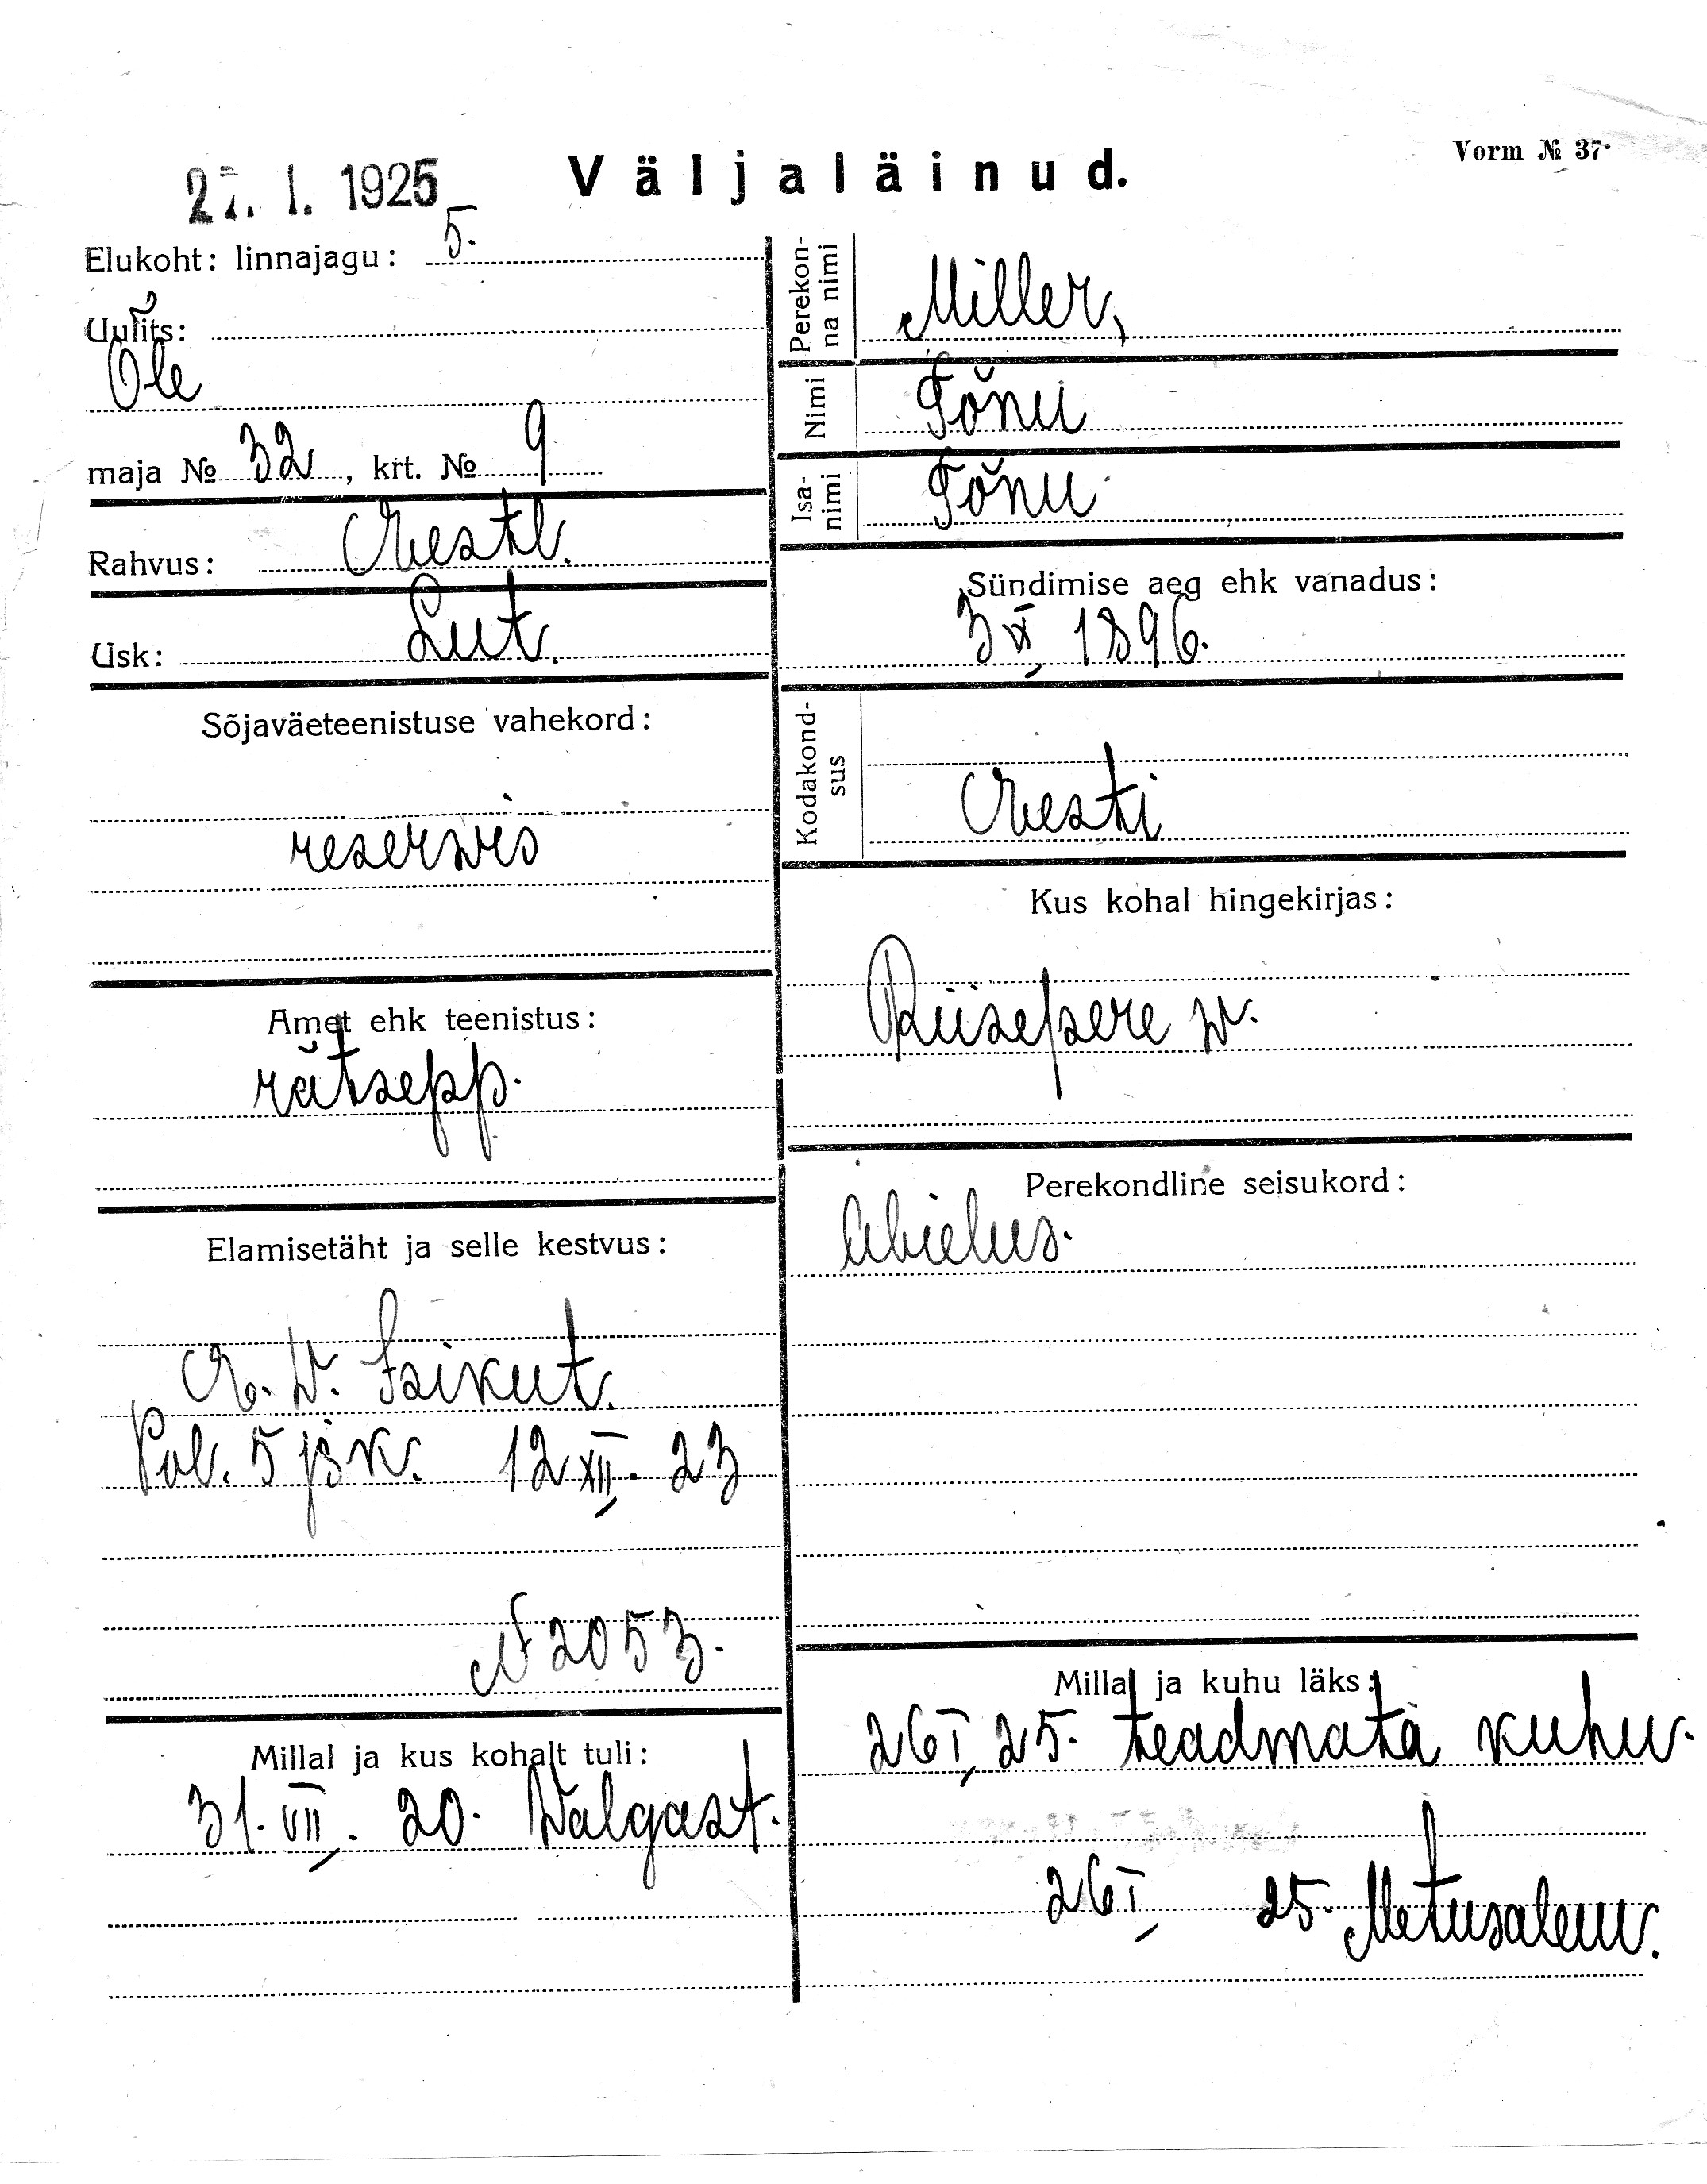 27. I. 1925
Väljaläinud.
Vorm № 37.
Elukoht: linnajagu: 5.
Uulits:
Õle
maja № 32, krt. № 9
Rahvus: Eestl.
Usk: Lut.
Sõjaväeteenistuse vahekord:
reserwis
Amet ehk teenistus:
rätsepp.
Elamisetäht ja selle kestvus:
E. W. Isikut.
Pol. 5 jsk. 12 XII. 23
N 2053.
Millal ja kus kohalt tuli:
31. VII. 20. Walgast.
Perekonna nimi
Miller,
Nimi
Tõnu
Isanimi
Tõnu
Sündimise aeg ehk vanadus:
3 XI 1896.
Kodakondsus
Eesti
Kus kohal hingekirjas:
Riisepere w.
Perekondline seisukord:
Abielus.
Millal ja kuhu läks:
26 I 25. teadmata kuhu.
26 I 25. Metusalem.